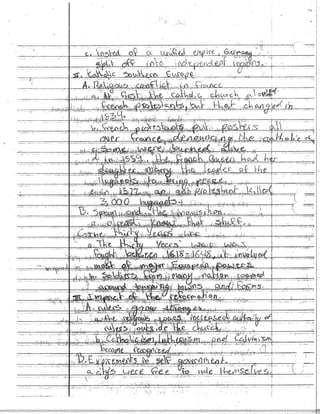 c. Insted of a unified empire, Germany
split off into independent regions.
II. Katholic Southern Europe
A. Religous conflict in France
a. At first, the catholic church
French protestants, but that changed in
1534.
b. French protestants put posters all
over France, denouncing the catholic
c. Some were burned alive
d. in 1559, the French Queen had her
daughter marry the leader of the
to bring peace.
1572, an protestnot killed
3,000
B. Spain and the Inquisition
a. already know that stuff.
C. The thirty Years
a. The thirty Years' was
fought between 1618-1648, it involved
most of major European powers
b. Soldiers from many nation roamed
around towns and farms.
III. Impact of the reformation.
A. rulers grow stronger
a. the religous increased authority of
rulers outside the church.
b. Catholicism, Lutherism and Calvinism
became recognized
B. Expirements in self government.
a. city's were free to rule themselves.